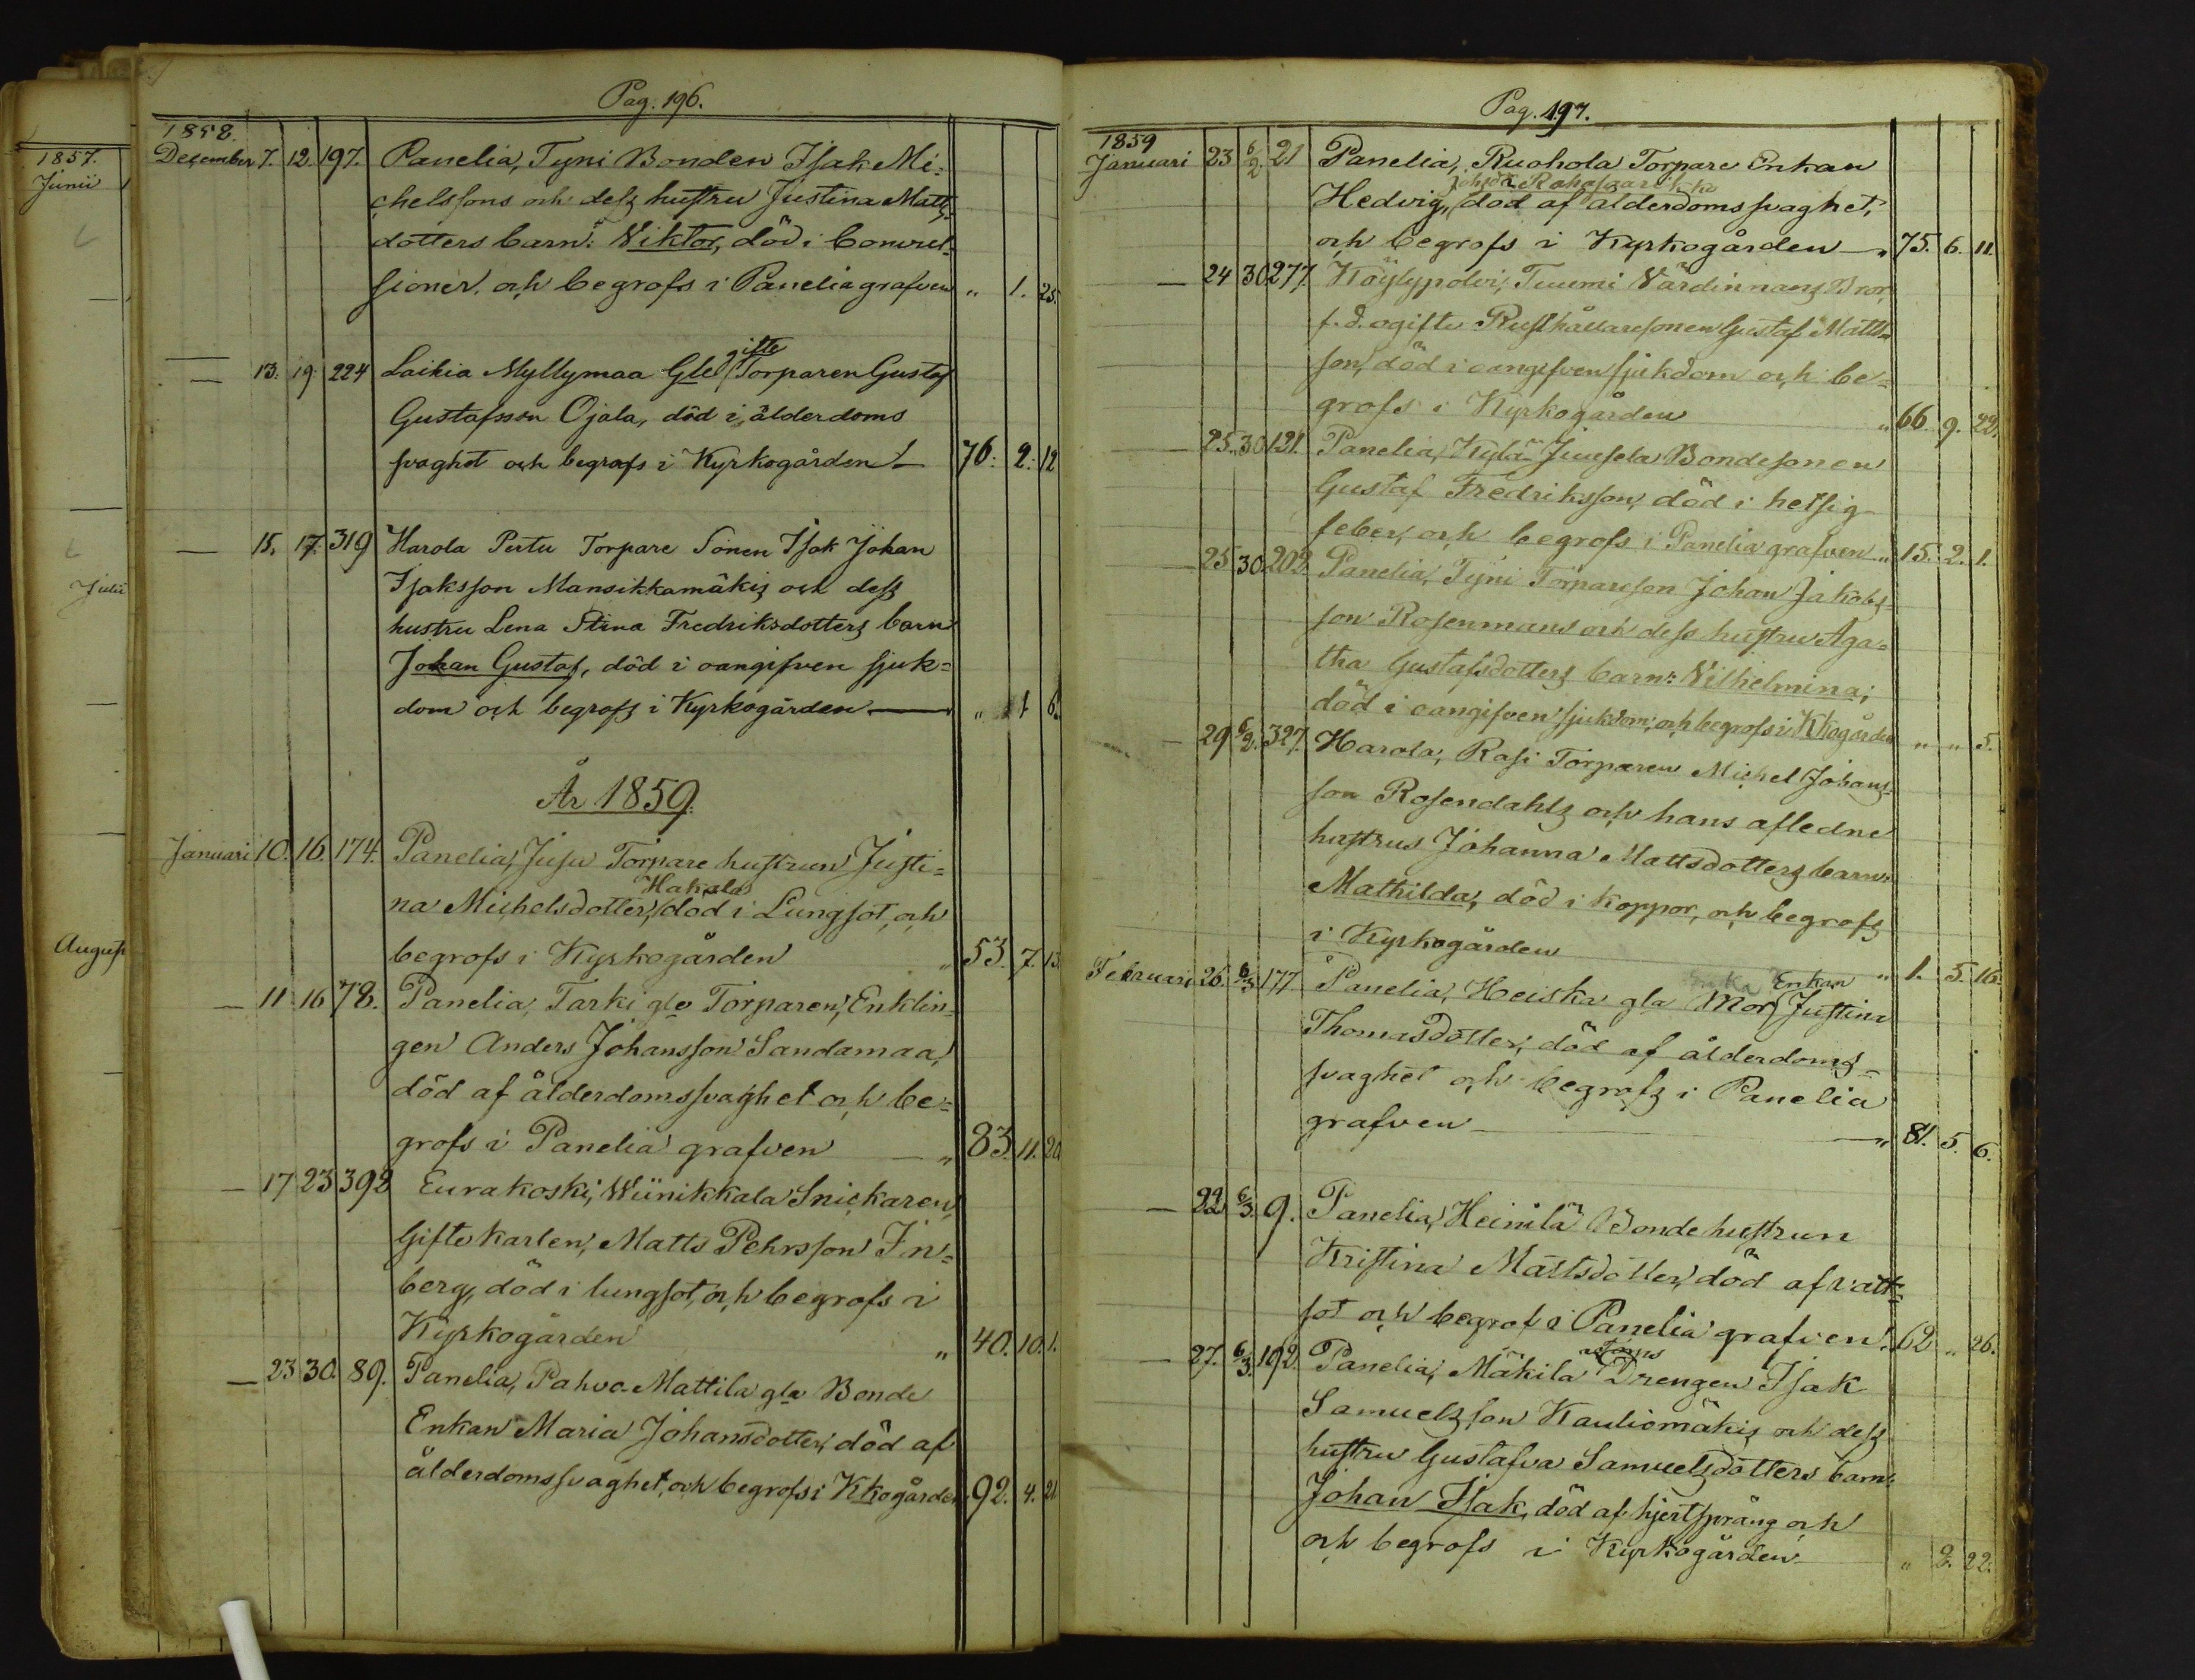 1857.
Junii
Julii
August
Pag. 196.
1858.
December 7. 12. 197. Panelia, Tyni Bonden Isak Mi=
chelssons och dess hustru Justina Matts
dotters barn: Viktor, död i Convul=
sioner och begrofs i Panelia grafven " 1. 25.
— 13. 19. 224 Laikia Myllymaa Gle gifte Torparen Gustaf
Gustafsson Ojala, död i ålderdoms
svaghet och begrofs i Kyrkogården — 76. 2. 12
— 15. 17. 319 Harola Pertu Torpare Sonen Isak Johan
Isaksson Mansikkamäkis och dess
hustru Lena Stina Fredriksdotters barn
Johan Gustaf, död i oangifven sjuk=
dom och begrofs i Kyrkogården — " 1 6.
År 1859.
Januari 10. 16. 174. Panelia, Jusu Torpare hustrun Justi=
Hakala
na Michelsdotter, död i Lungsot, och
begrofs i Kyrkogården " 53. 7. 13.
— 11 16 78. Panelia, Tarki gle Torparen, Enklin=
gen Anders Johansson Sandamaa,
död af ålderdomssvaghet och be=
grofs i Panelia grafven — " 83. 11. 20
— 17 23 392 Eurakoski, Wiinikkala Snickaren,
Gifte karlen, Matts Pehrsson Fin=
berg, död i lungsot, och begrofs i
Kyrkogården " 40. 10. 1.
— 23 30. 89. Panelia, Pahvo-Mattila gla Bonde
Enkan Maria Johansdotter, död af
ålderdomssvaghet, och begrofs i Kkogården 92. 4. 21
Pag. 197.
1859
Januari 23 6/2. 21 Panelia, Ruohola Torpare Enkan
Johsdr
Hedvig, död af ålderdomssvaghet,
och begrofs i Kyrkogården — " 75. 6. 11.
— 24 30 277. Köylypolvi, Tuumi Värdinnans Bror,
f.d. ogifte Rusthållaresonen Gustaf Matts
son, död i oangifven sjukdom och be=
grofs i Kyrkogården " 66 9. 22.
— 25. 30 121. Panelia, Kylä-Juusela Bondesonen
Gustaf Fredriksson, död i hetsig
feber, och begrofs i Panelia grafven " 15. 2. 1.
— 25 30. 202. Panelia, Tyni Torpareson Johan Jakobs=
son Rosenmans och dess hustru Aga=
tha Gustafsdotters barn: Vilhelmina,
död i oangifven sjukdom, och begrofs i Kkogården " " 5.
— 29 6/2. 327. Harola, Rasi Torparen Michel Johans=
son Rosendahls och hans aflednе
hustrus Johanna Mattsdotters barn:
Mathilda, död i koppor, och begrofs
i Kyrkogården " 1. 5. 16.
Enkan
Februari 26. 6/3 177 Panelia, Heiska gla Mor Justina
Thomasdotter, död af ålderdoms=
svaghet och begrofs i Panelia
grafven — " 81. 5. 6.
— 22 6/3. 9. Panelia, Heinilä Bonde hustrun
Kristina Mattsdotter, död af vatt=
sot och begrof i Panelia grafven. 62 " 26.
— 27. 6/3. 192. Panelia, Mäkila Drengen Isak
Samuelsson Kauliomäkis och dess
hustru Gustafva Samuelsdotters barn:
Johan Isak, död af hjertsprång och
och begrofs i Kyrkogården " 2. 22.